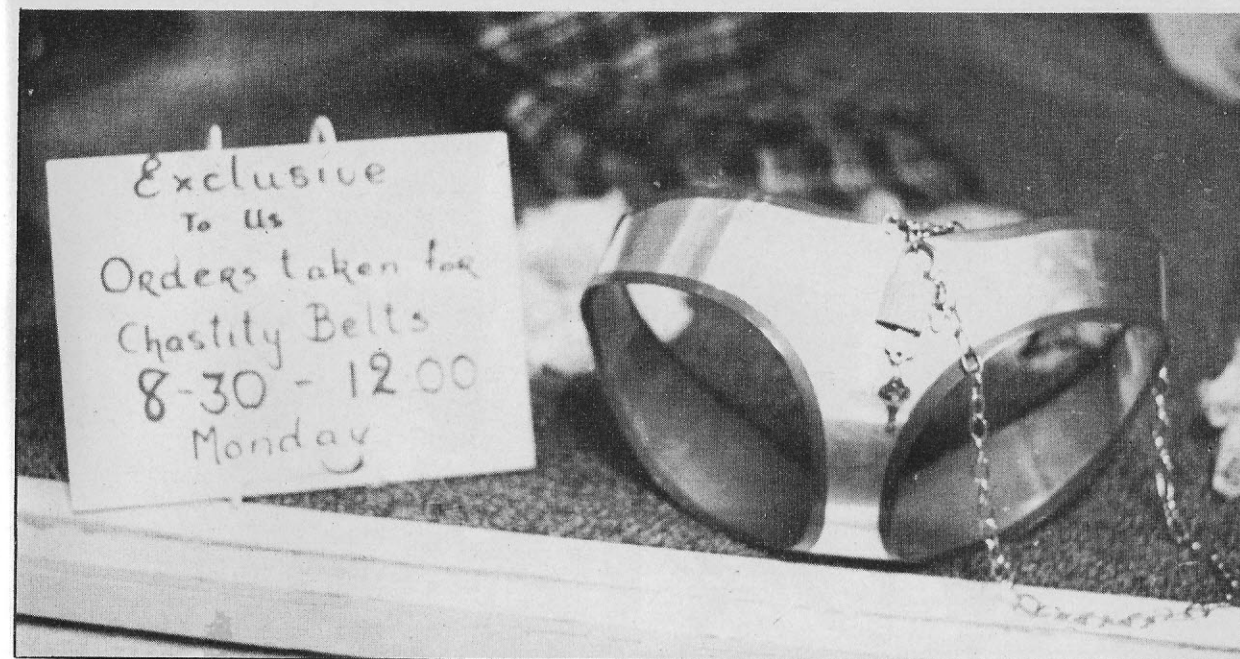 Exclusive
To Us
Orders taken for
Chastity Belts
8-30 - 12.00
Monday